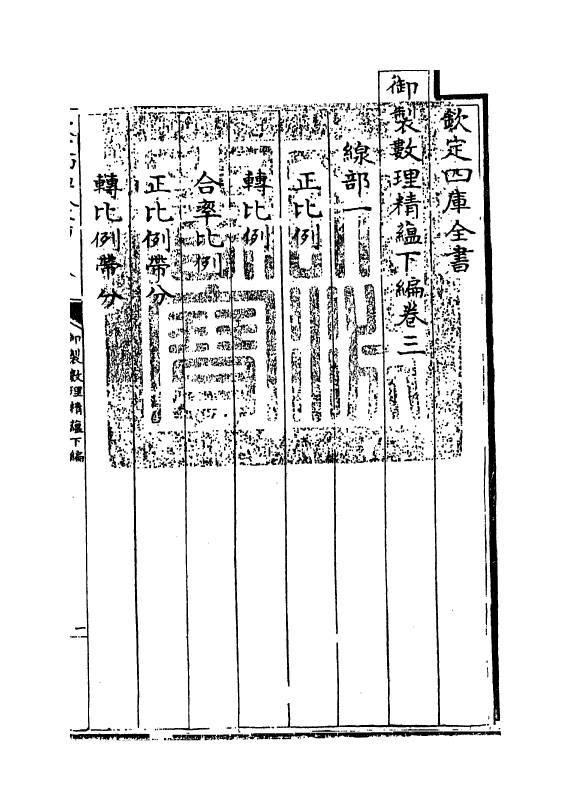 欽定四庫全書
御製數理精藴下編卷三
線部一
正比例
轉比例
合率比例
正比例帶分
轉比例帶分
御製數理精藴下編
一